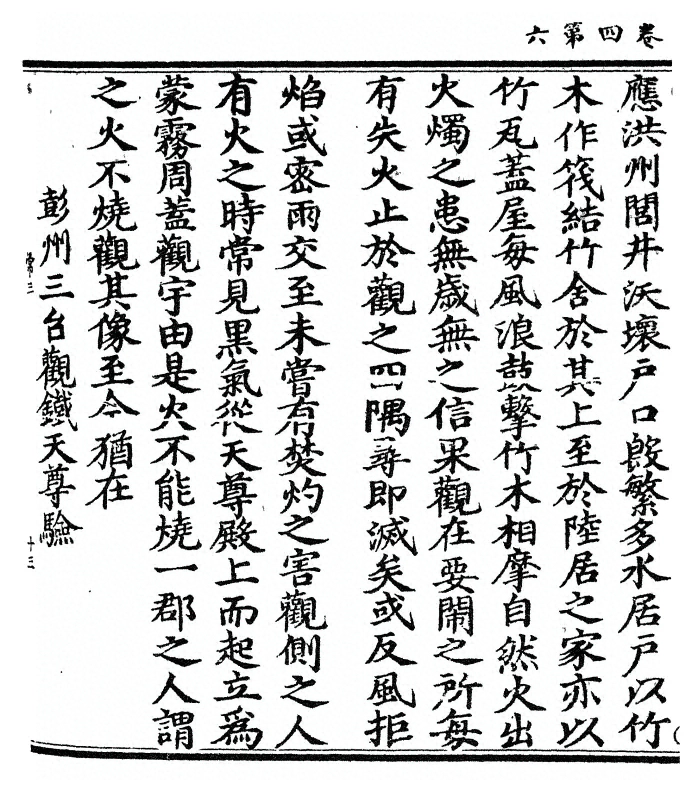 卷四第六
應洪州閭井沃壤戶口殷繁多水居戶以竹
木作筏結竹舍於其上至於陸居之家亦以
竹瓦蓋屋每風浪鼓擊竹木相摩自然火出
火燭之患無歲無之信果觀在要鬧之所每
有失火止於觀之四隅尋即滅矣或反風拒
焰或密雨交至未嘗有焚灼之害觀側之人
有火之時常見黑氣從天尊殿上而起立為
蒙霧周蓋觀宇由是火不能燒一郡之人謂
之火不燒觀其像至今猶在
彭州三台觀鐵天尊驗
常三
十三